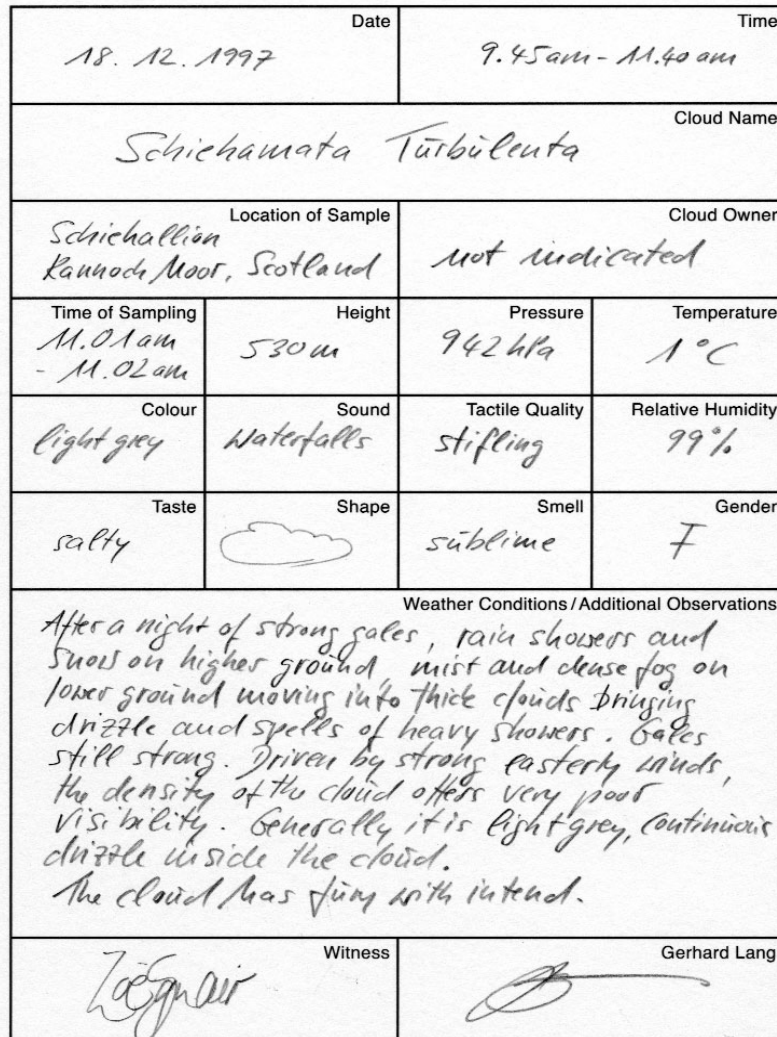 Date
18. 12. 1997
Time
9.45am - 11.40am
Cloud Name
Schiehamata Turbulenta
Location of Sample
Schiehallion
Rannoch Moor, Scotland
Cloud Owner
not indicated
Time of Sampling
11.01am
- 11.02am
Height
530m
Pressure
942 hPa
Temperature
1°C
Colour
light grey
Sound
Waterfalls
Tactile Quality
stifling
Relative Humidity
99%
Taste
salty
Shape
Smell
sublime
Gender
F
Weather Conditions / Additional Observations
After a night of strong gales, rain showers and
snow on higher ground, mist and dense fog on
lower ground moving into thick clouds bringing
drizzle and spells of heavy showers. Gales
still strong. Driven by strong easterly winds,
the density of the cloud offers very poor
visibility. Generally it is light grey, continuous
drizzle inside the cloud.
The cloud has fury with intend.
Witness
Gerhard Lang